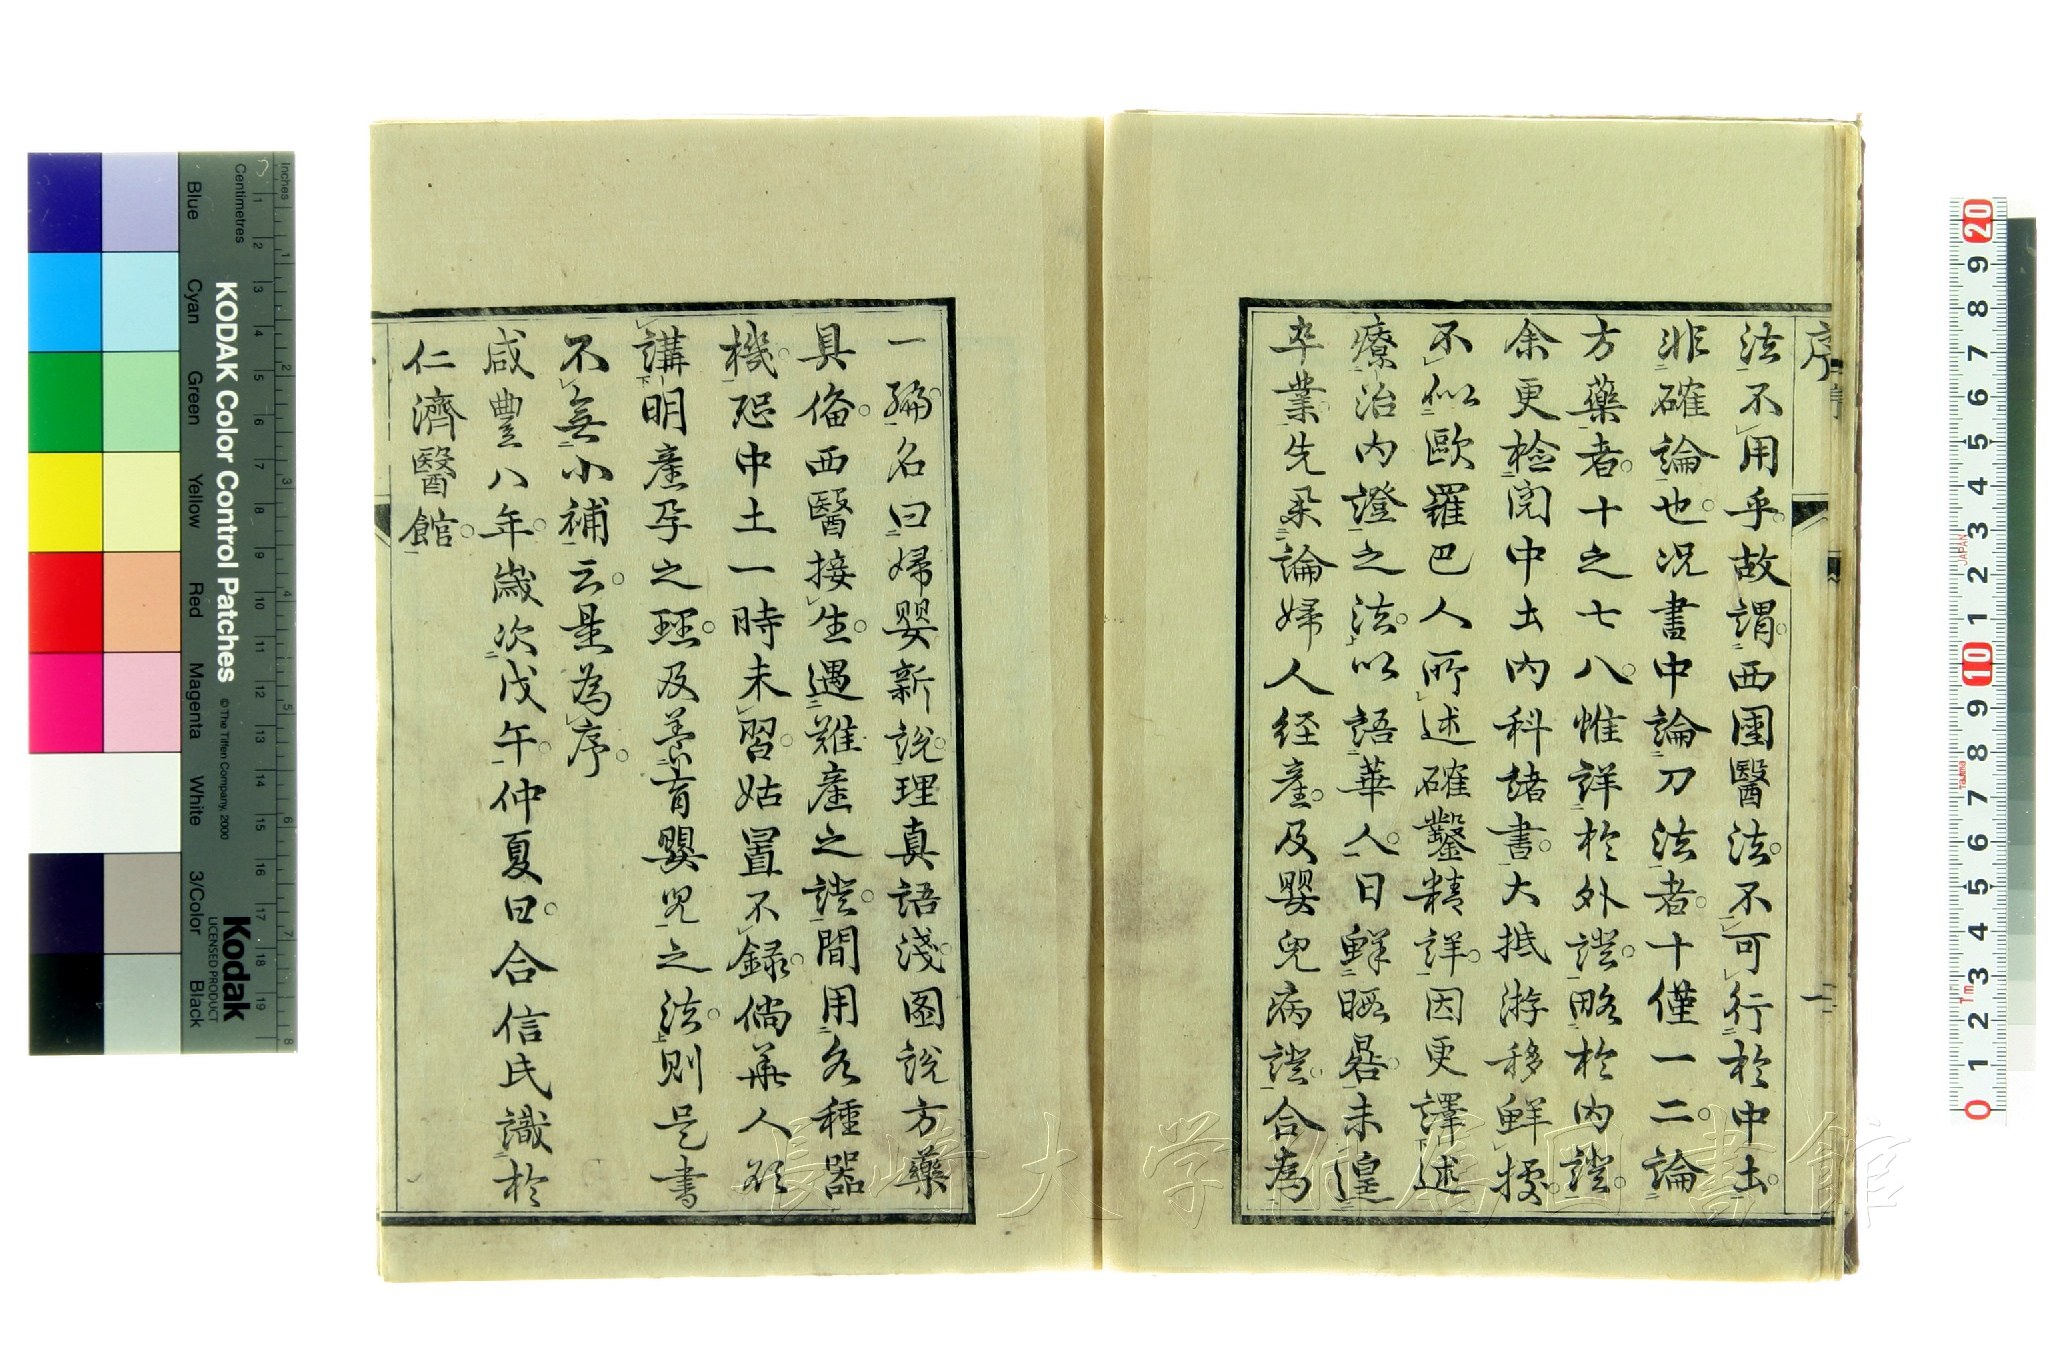 序
法不用乎故謂西國醫法不可行於中土
非確論也况書中論刀法者十僅一二論
方藥者十之七八惟詳於外證略於内證
余更检阅中土内科諸書大抵游移鮮據
不似歐羅巴人所述確鑿精詳因更譯述
療治内證之法以語華人日鮮暇晷未遑
卒業先采論婦人经產及嬰兒病證合為
一編名曰婦嬰新說理真語淺图說方藥
具俻西醫接生遇難產之證間用各種器
機恐中土一時未習姑置不録倘華人欲
講明產孕之理及养育嬰兒之法则是書
不無小補云是為序
咸豐八年歲次戊午仲夏日合信氏識於
仁濟醫館
長崎大学附属図書館
KODAK Color Control Patches
© The Tiffen Company, 2000
Kodak
LICENSED PRODUCT
Inches
Centimetres
Blue
Cyan
Green
Yellow
Red
Magenta
White
3/Color
Black
1 2 3 4 5 6 7 8 9 10 11 12 13 14 15 16 17 18 19
1 2 3 4 5 6 7 8
20 9 8 7 6 5 4 3 2 1 10 9 8 7 6 5 4 3 2 1 0
JAPAN